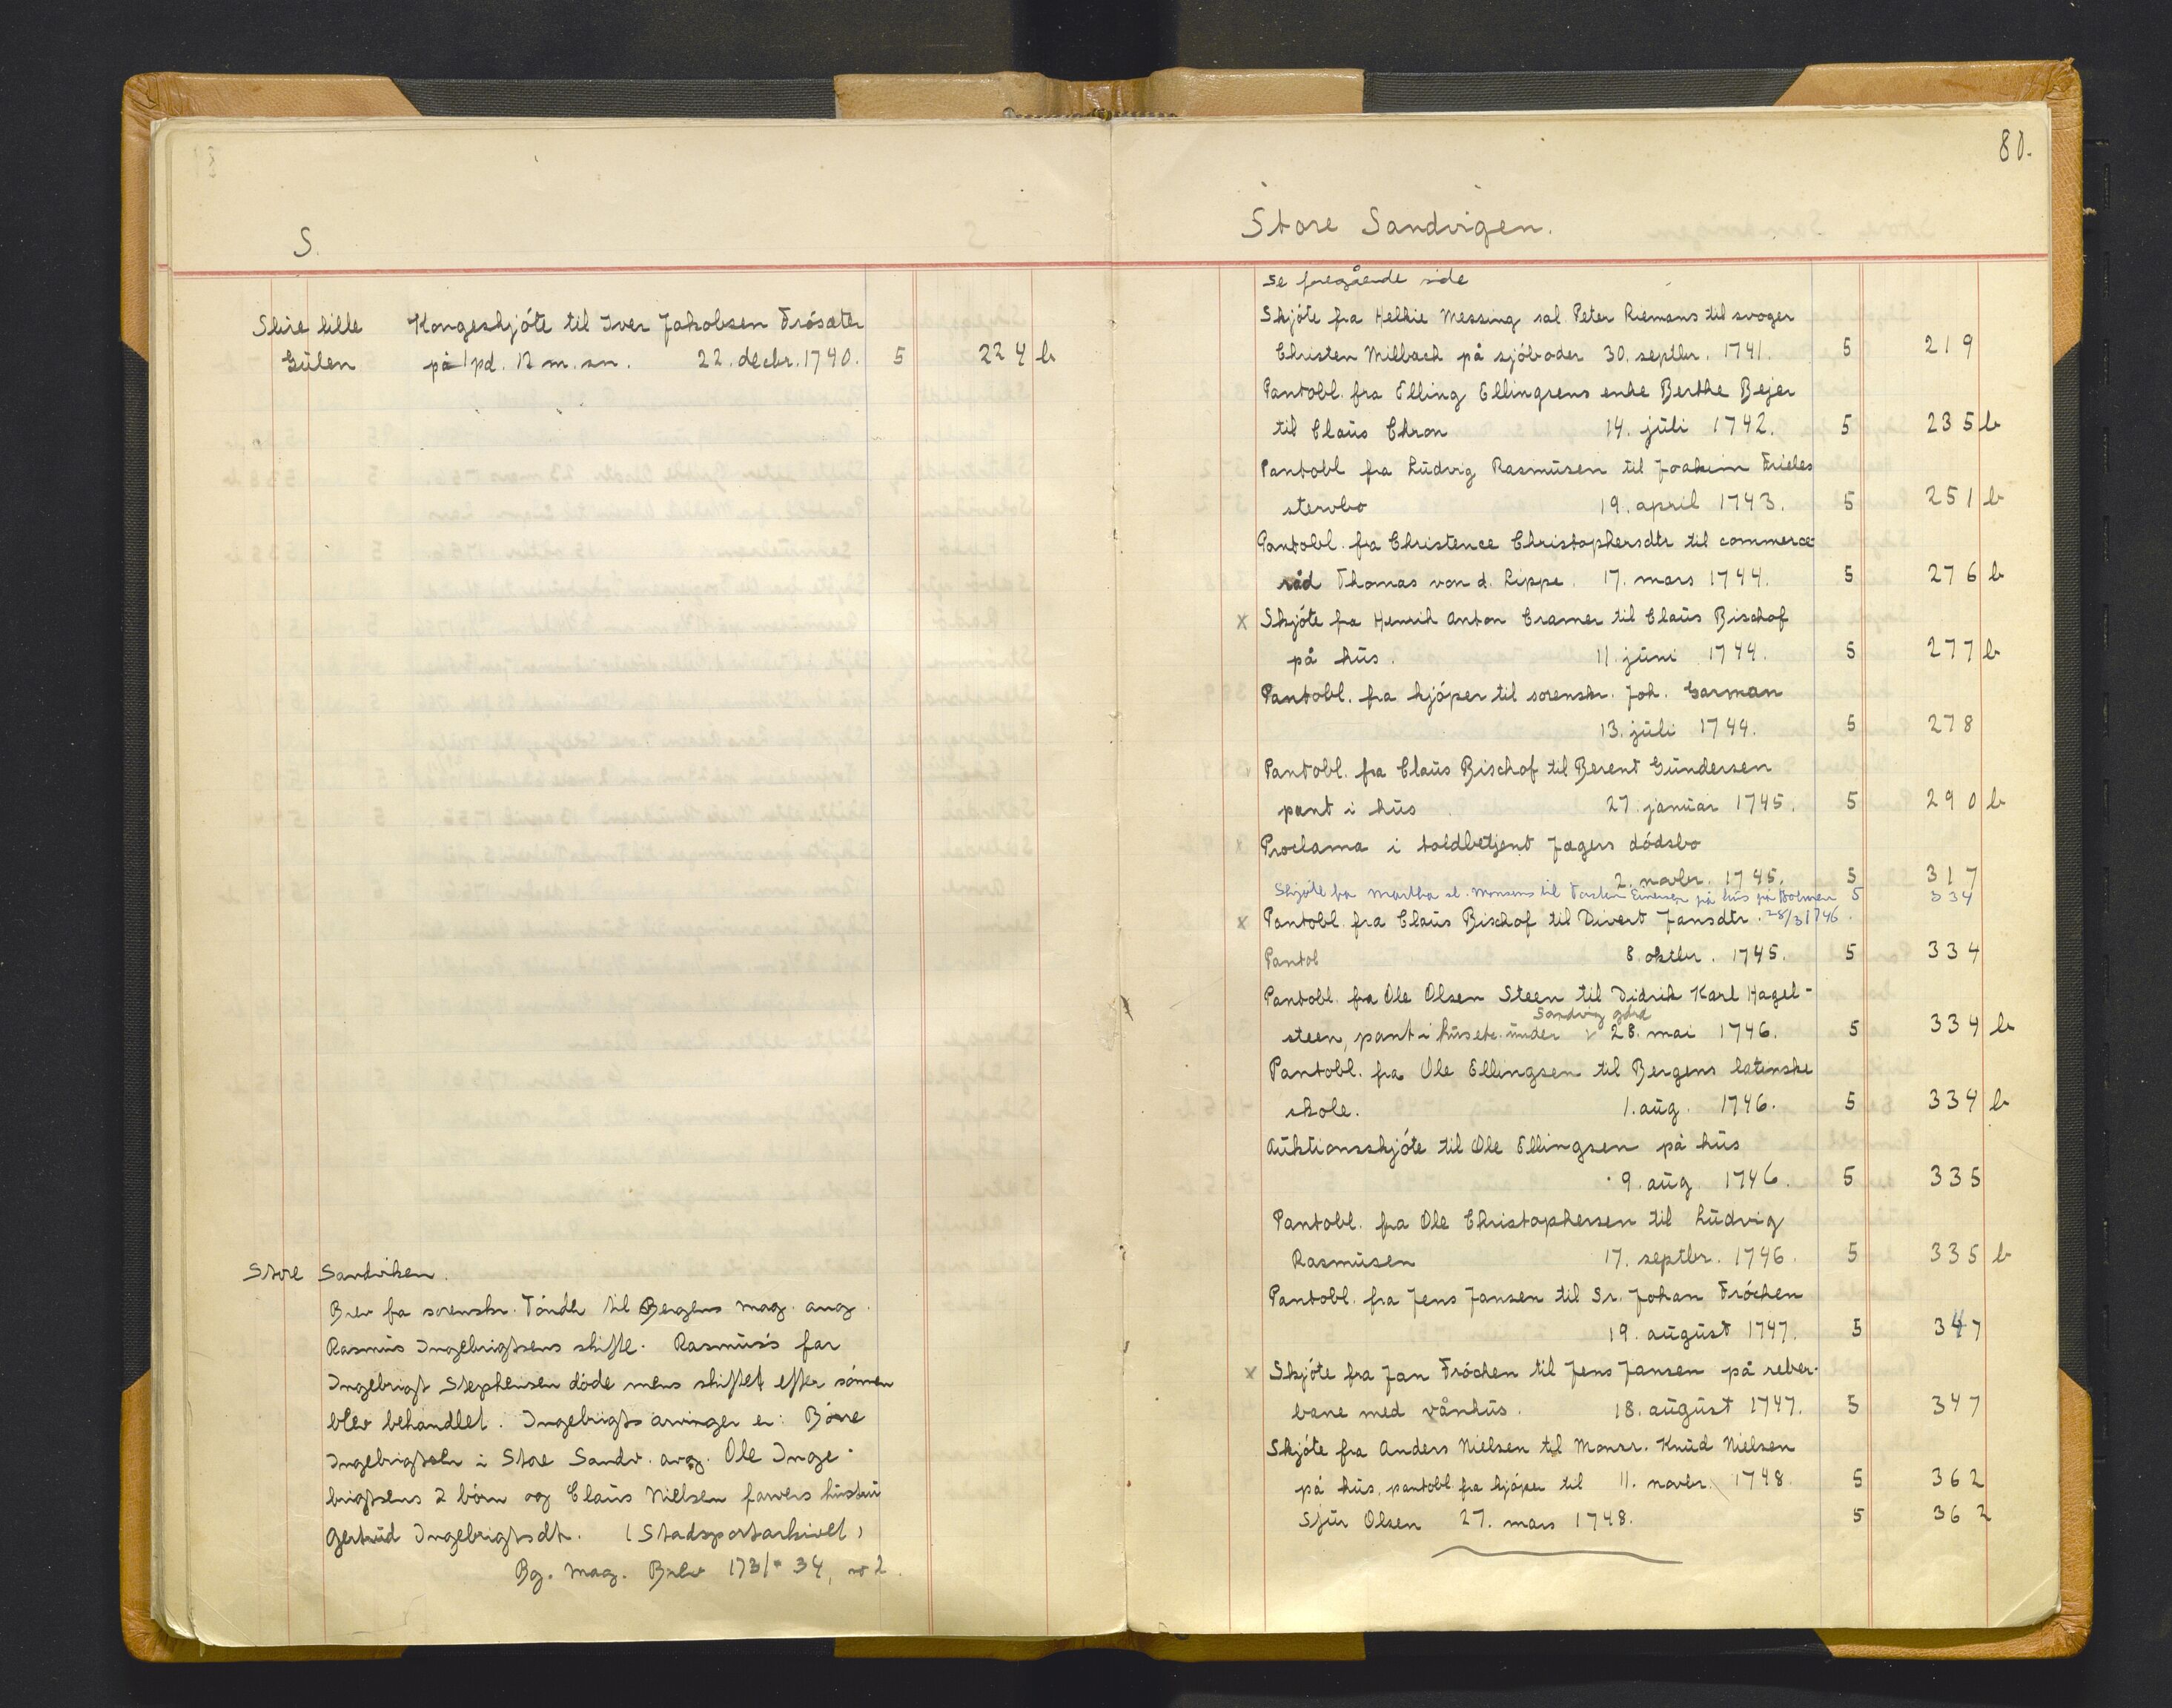 S.
Slire lille Kongeskjóte til Iver Jakobsen Frósæter
Gülen på 1 pd. 12 m. sn. 22. decbr. 1740. 5 224 b
Store Sandviken.
Brev fra sorenskr. Tóndr til Bergens mag. ang.
Rasmus Ingebrigtsens skifte. Rasmus's far
Ingebrigt Stephensen dóde mens skiftet efter sónnen
blev behandlet. Ingebrigts arvinger er: Bórre
i Store Sandv. avg. Ole Inge-
brigtsens 2 börn og Claüs Nielsen farvers hüstrü
Gertrüd Ingebrigtsdt. (Stadsportarkivet)
Bg. mag. Brev 1731-34, nr 2.
80.
Store Sandvigen.
Se foregående side
Skjóte fra Helkie Messing sal. Peter Riemans til svoger
Christen Milbach på sjóboder 30. septbr. 1741. 5 219
Pantobl. fra Elling Ellingsens enke Berthe Bejer
til Claüs Chron 14. jüli 1742. 5 235 b
Pantobl fra Lüdvig Rasmüsen til Joakim Frieles
stervbo 19. april 1743. 5 251 b
Pantobl. fra Christence Christophersdtr til commerce
råd Thomas von d. Lippe. 17. mars 1744. 5 276 b
x Skjóte fra Henrik Anton Cramer til Claüs Bischof
på hüs. 11. jüni 1744. 5 277 b
Pantobl. fra kjóper til sorenskr. Joh. Garman
13. jüli 1744. 5 278
Pantobl. fra Claüs Bischof til Berent Gündersen
pant i hüs 27. janüar 1745. 5 290 b
Proclama i toldbetjent Jægers dódsbo
2. novbr. 1745. 5 317
Skjóte fra Martha sl. Monsens til Torsten Einersen på hüs på Holmen 5 334
x Pantobl. fra Claüs Bischof til Divert Jansdtr. 28/3 1746.
Pantob 8. oktbr. 1745. 5 334
Pantobl. fra Ole Olsen Steen til Didrik Karl Hagel-
Sandvig gård
steen, pant i hüs etc. ünder v 28. mai 1746. 5 334 b
Pantobl. fra Ole Ellingsen til Bergens latinske
skole. 1. aüg. 1746. 5 334 b
Aüktionsskjóte til Ole Ellingsen på hüs
9. aüg. 1746. 5 335
Pantobl. fra Ole Christophersen til Lüdvig
Rasmüsen 17. septbr. 1746. 5 335 b
Pantobl. fra Jens Jansen til Sr. Johan Fróchen
19. aügüst 1747. 5 347
x Skjóte fra Jan Fróchen til Jens Jansen på reber-
bane med vånhüs. 18. aügüst 1747. 5 347
Skjóte fra Anders Nielsen til Monsr. Knüd Nielsen
på hüs, pantobl. fra kjóper til 11. novbr. 1748. 5 362
Sjür Olsen 27. mars 1748. 5 362